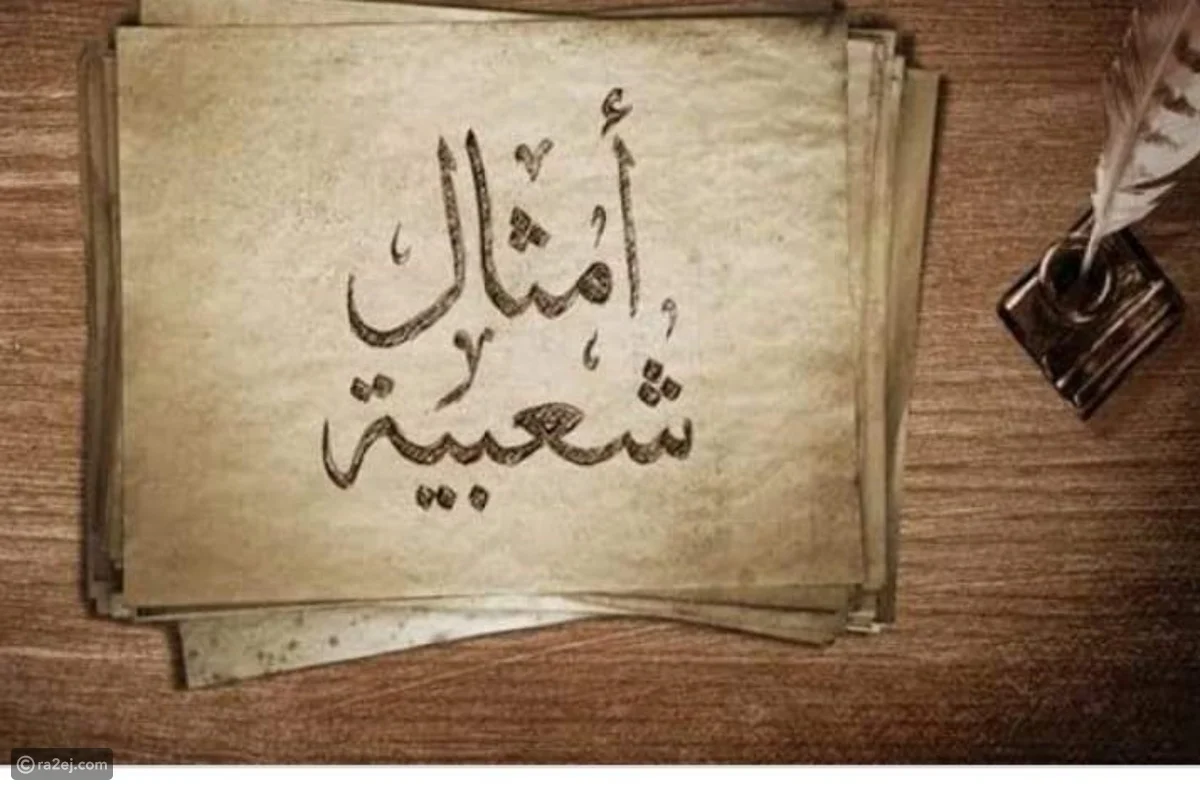 أمثال
شعبية
© ra2ej.com